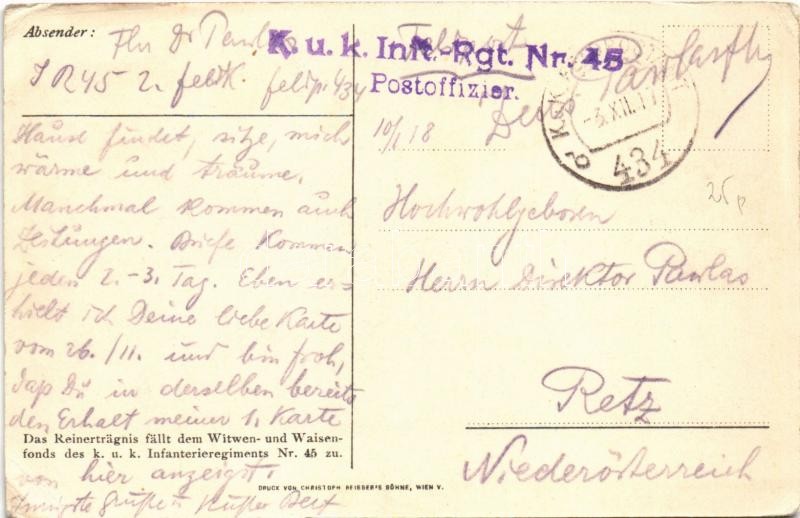 Absender: Flw Dr Pawlas
IR 45 2. feldK. feldp. 434
K. u. k. Inft.-Rgt. Nr. 45
Postoffizier.
Feldpost
K.u.K.
-3.XII.17
434
10/1 18
25 p
Haus findet, sitze, mich
wärme und träume.
Manchmal kommen auch
Zeitungen. Briefe kommen
jeden 2.-3. Tag. Eben er-
hielt ich Deine liebe Karte
vom 26./11. und bin froh,
dap Du in derselben bereits
den Erhalt meiner 1. Karte
Das Reinerträgnis fällt dem Witwen- und Waisen-
fonds des k. u. k. Infanterieregiments Nr. 45 zu.
von hier anzeigst.
Innigste Grüße u Küsse
DRUCK VON CHRISTOPH REISSER'S SÖHNE, WIEN V.
Hochwohlgeboren
Herrn Direktor Pawlas
Retz
Niederösterreich